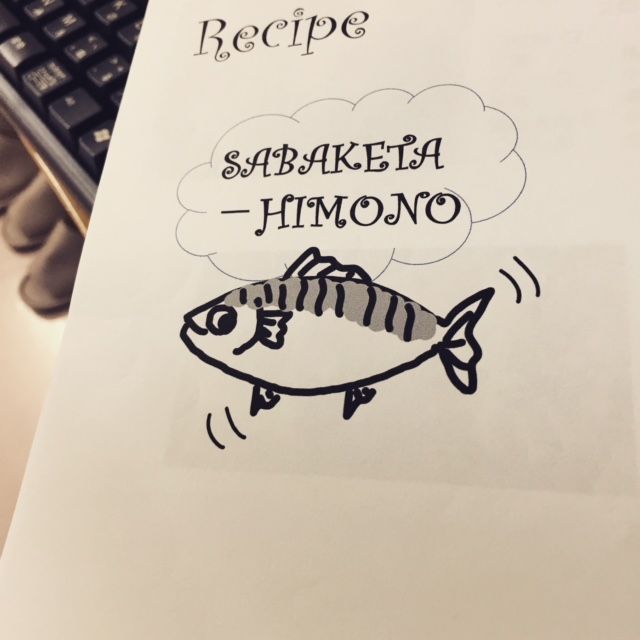 Recipe
SABAKETA
－HIMONO